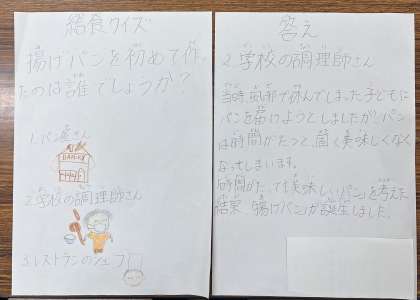 給食クイズ
揚げパンを初めて作っ
たのは誰でしょうか?
1.パン屋さん
2.学校の調理師さん
3.レストランのシェフ
答え
2.学校の調理師さん
当時、風邪で休んでしまった子どもに
パンを届けようとしましたが、パン
は時間がたつと、固く美味しくなく
なってしまいます。
時間がたっても美味しいパンを考えた
結果、揚げパンが誕生しました。